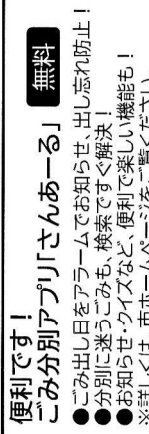 便利です！
ごみ分別アプリ「さんあーる」 無料
●ごみ出し日をアラームでお知らせ、出し忘れ防止！
●分別に迷うごみも、検索ですぐ解決！
●お知らせ・クイズなど、便利で楽しい機能も！
※詳しくは、市ホームページをご覧ください。